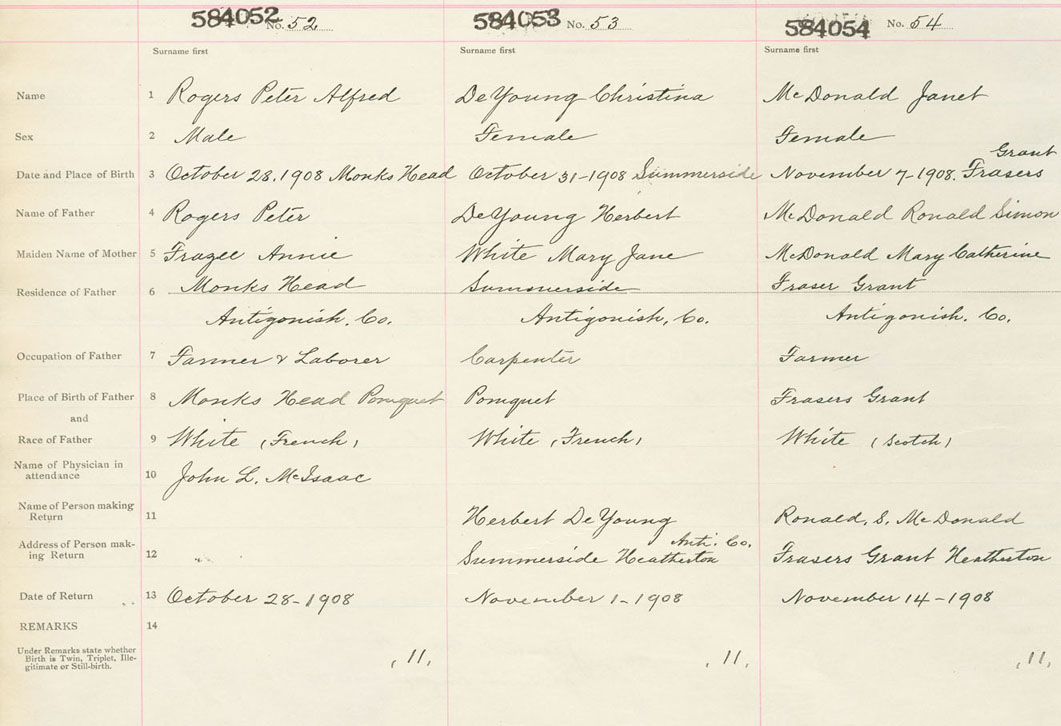 584052 No. 52 584053 No. 53 584054 No. 54
Surname first Surname first Surname first
Name 1 Rogers Peter Alfred DeYoung Christina McDonald Janet
Sex 2 Male Female Female
Grant
Date and Place of Birth 3 October 28, 1908 Monks Head October 31-1908 Summerside November 7-1908. Frasers
Name of Father 4 Rogers Peter DeYoung Herbert McDonald Ronald Simon
Maiden Name of Mother 5 Annie White Mary Jane McDonald Mary Catherine
Residence of Father 6 Monks Head Summerside Fraser Grant
Antigonish. Co. Antigonish, Co. Antigonish. Co.
Occupation of Father 7 Farmer & Laborer Carpenter Farmer
Place of Birth of Father 8 Monks Head Pomquet Pomquet Frasers Grant
and
Race of Father 9 White (French) White (French) White (Scotch)
Name of Physician in
attendance 10 John L. McIsaac
Name of Person making
Return 11 Herbert DeYoung Ronald. S. McDonald
Anti. Co.
Address of Person mak-
ing Return 12 Summerside Heatherton Frasers Grant Heatherton
Date of Return 13 October 28-1908 November 1-1908 November 14-1908
REMARKS 14
Under Remarks state whether
Birth is Twin, Triplet, Ille-
gitimate or Still-birth.
, 11, , 11, , 11,